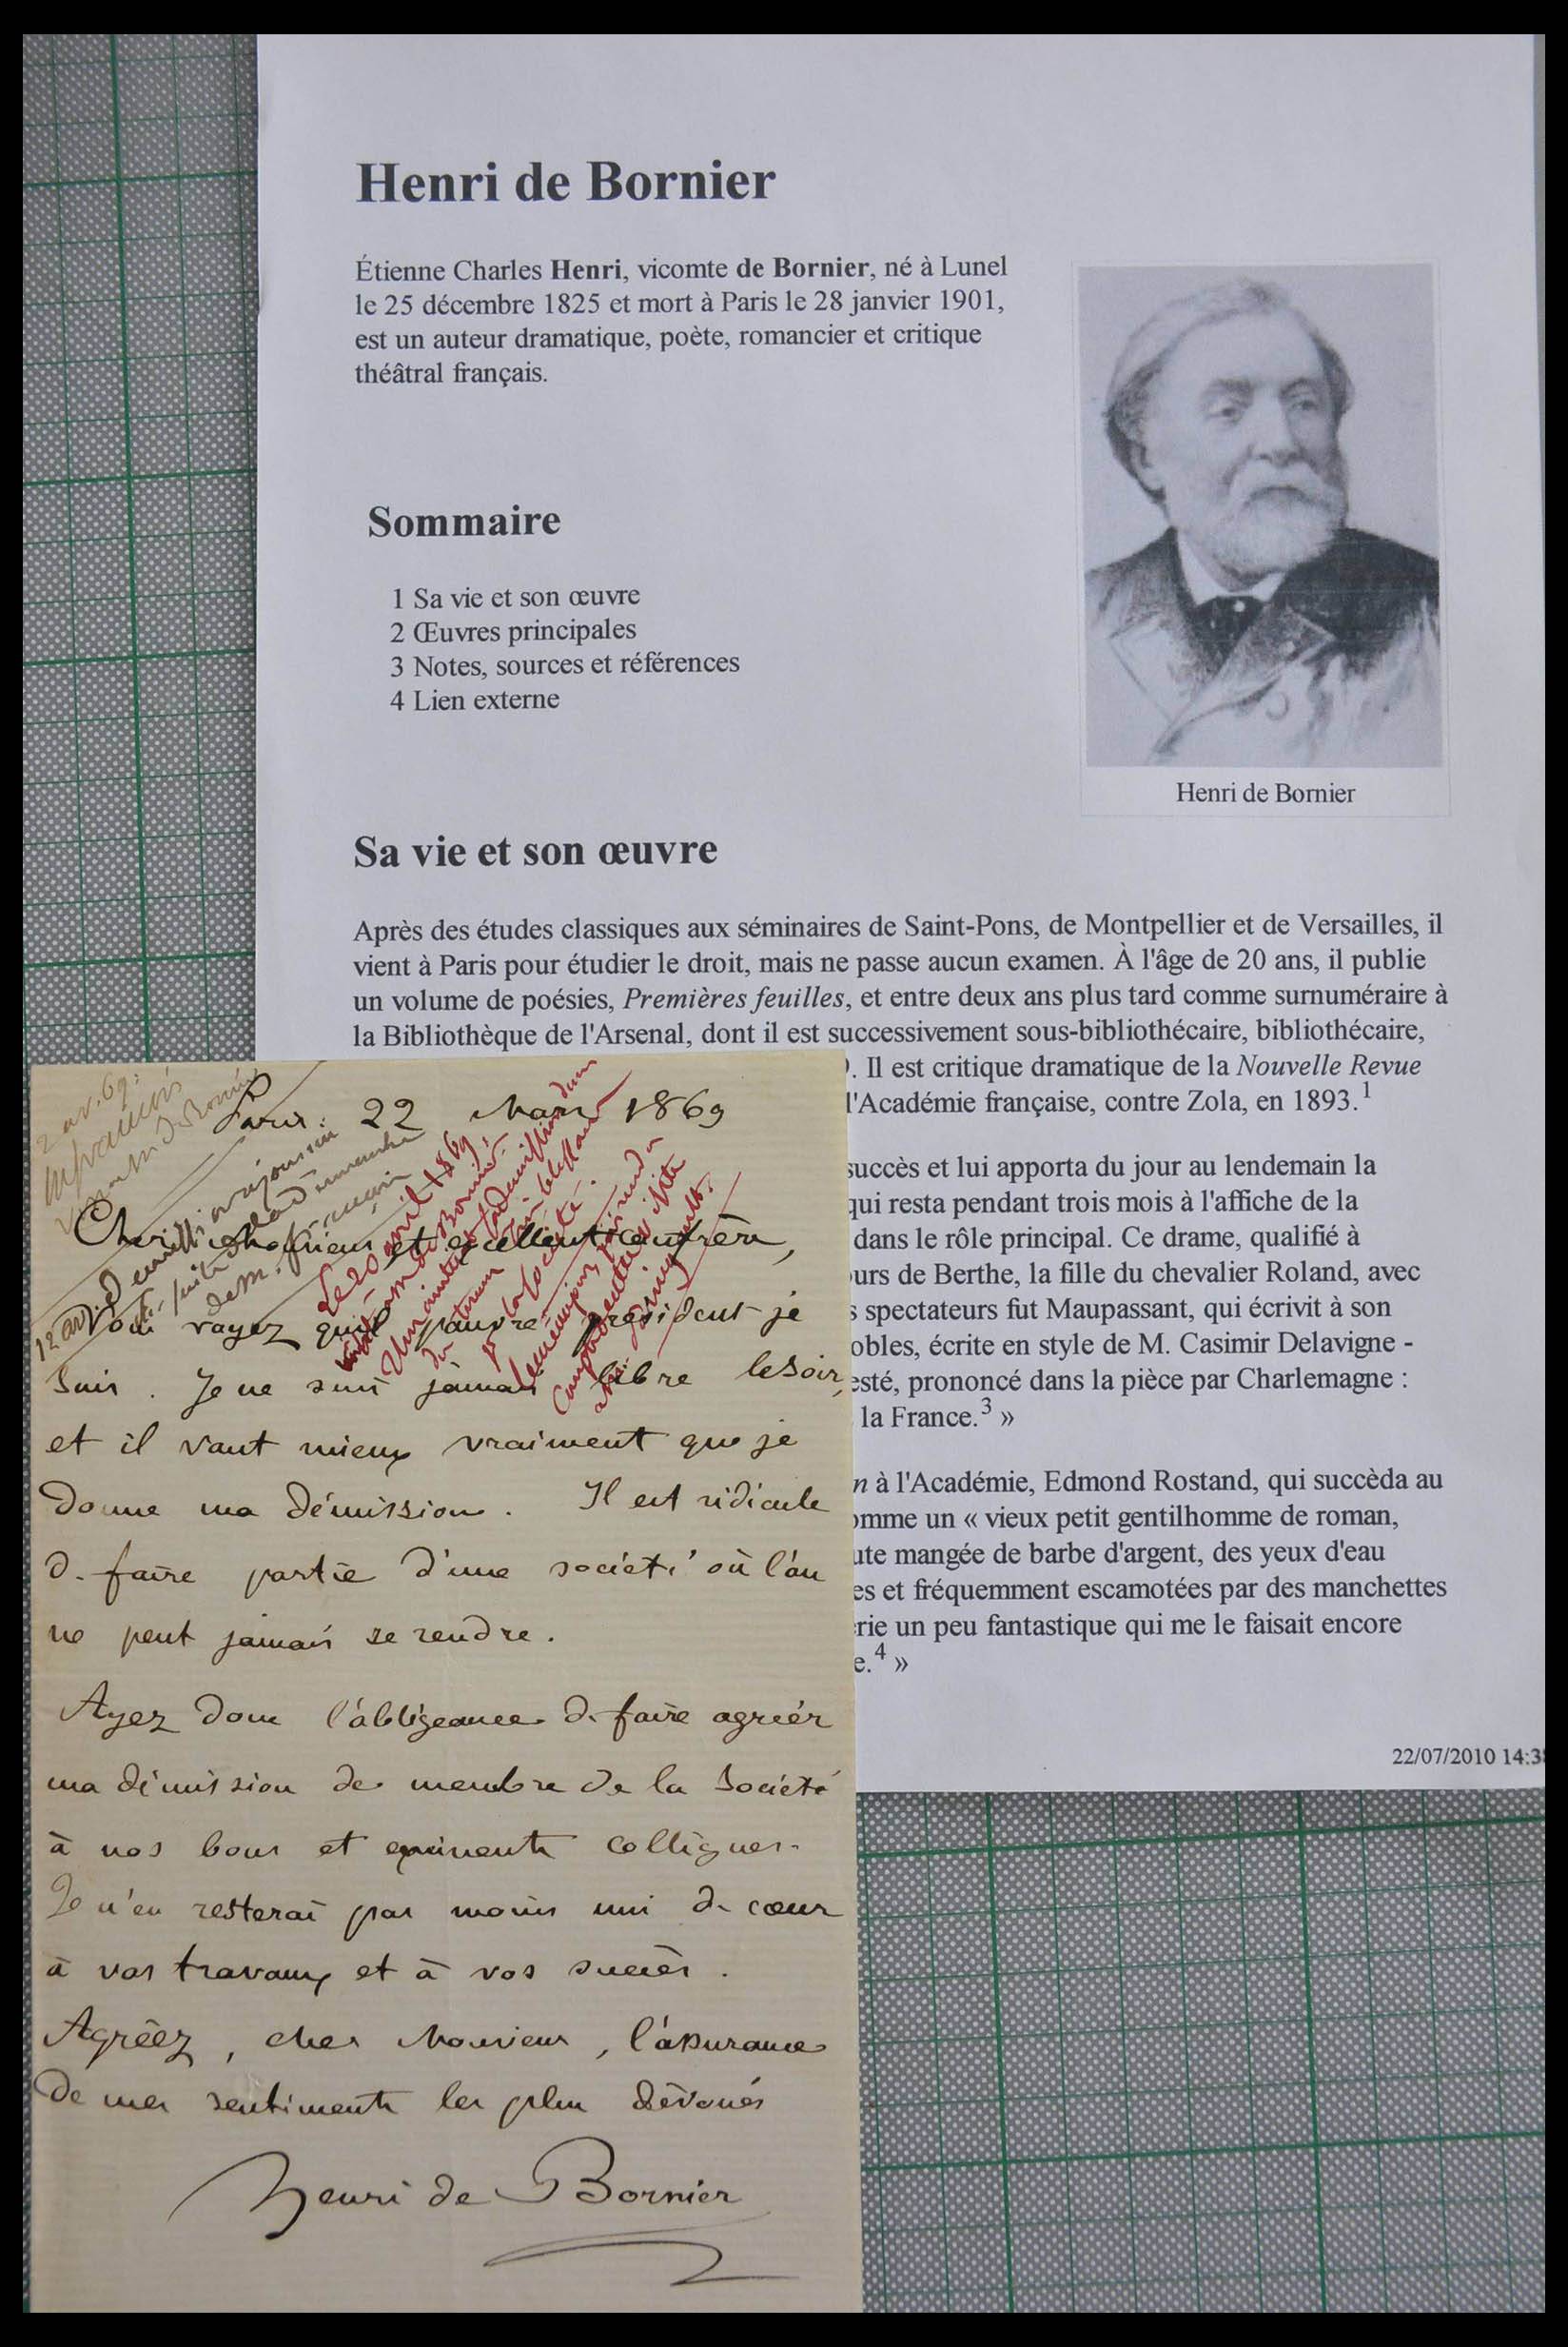 Henri de Bornier
Étienne Charles Henri, vicomte de Bornier, né à Lunel
le 25 décembre 1825 et mort à Paris le 28 janvier 1901,
est un auteur dramatique, poète, romancier et critique
théâtral français.
Sommaire
1 Sa vie et son œuvre
2 Œuvres principales
3 Notes, sources et références
4 Lien externe
Henri de Bornier
Sa vie et son œuvre
Après des études classiques aux séminaires de Saint-Pons, de Montpellier et de Versailles, il
vient à Paris pour étudier le droit, mais ne passe aucun examen. À l'âge de 20 ans, il publie
un volume de poésies, Premières feuilles, et entre deux ans plus tard comme surnuméraire à
la Bibliothèque de l'Arsenal, dont il est successivement sous-bibliothécaire, bibliothécaire,
. Il est critique dramatique de la Nouvelle Revue
l'Académie française, contre Zola, en 1893.1
succès et lui apporta du jour au lendemain la
qui resta pendant trois mois à l'affiche de la
dans le rôle principal. Ce drame, qualifié à
urs de Berthe, la fille du chevalier Roland, avec
s spectateurs fut Maupassant, qui écrivit à son
obles, écrite en style de M. Casimir Delavigne -
esté, prononcé dans la pièce par Charlemagne :
la France.3 »
n à l'Académie, Edmond Rostand, qui succèda au
omme un « vieux petit gentilhomme de roman,
ute mangée de barbe d'argent, des yeux d'eau
es et fréquemment escamotées par des manchettes
rie un peu fantastique qui me le faisait encore
e.4 »
22/07/2010 14:3
2 av. 69.
Paris. 22 Mars 1869
Cher Monsieur et excellent confrère,
Vous voyez quel pauvre président je
suis. Je ne suis jamais libre le soir,
et il vaut mieux vraiment que je
donne ma démission. Il est ridicule
de faire partie d'une société où l'on
ne peut jamais se rendre.
Ayez donc l'obligeance de faire agréer
ma démission de membre de la Société
à nos bons et éminents collègues.
Je n'en resterai pas moins uni de cœur
à vos travaux et à vos succès.
Agréez, cher Monsieur, l'assurance
de mes sentiments les plus dévoués
Henri de Bornier